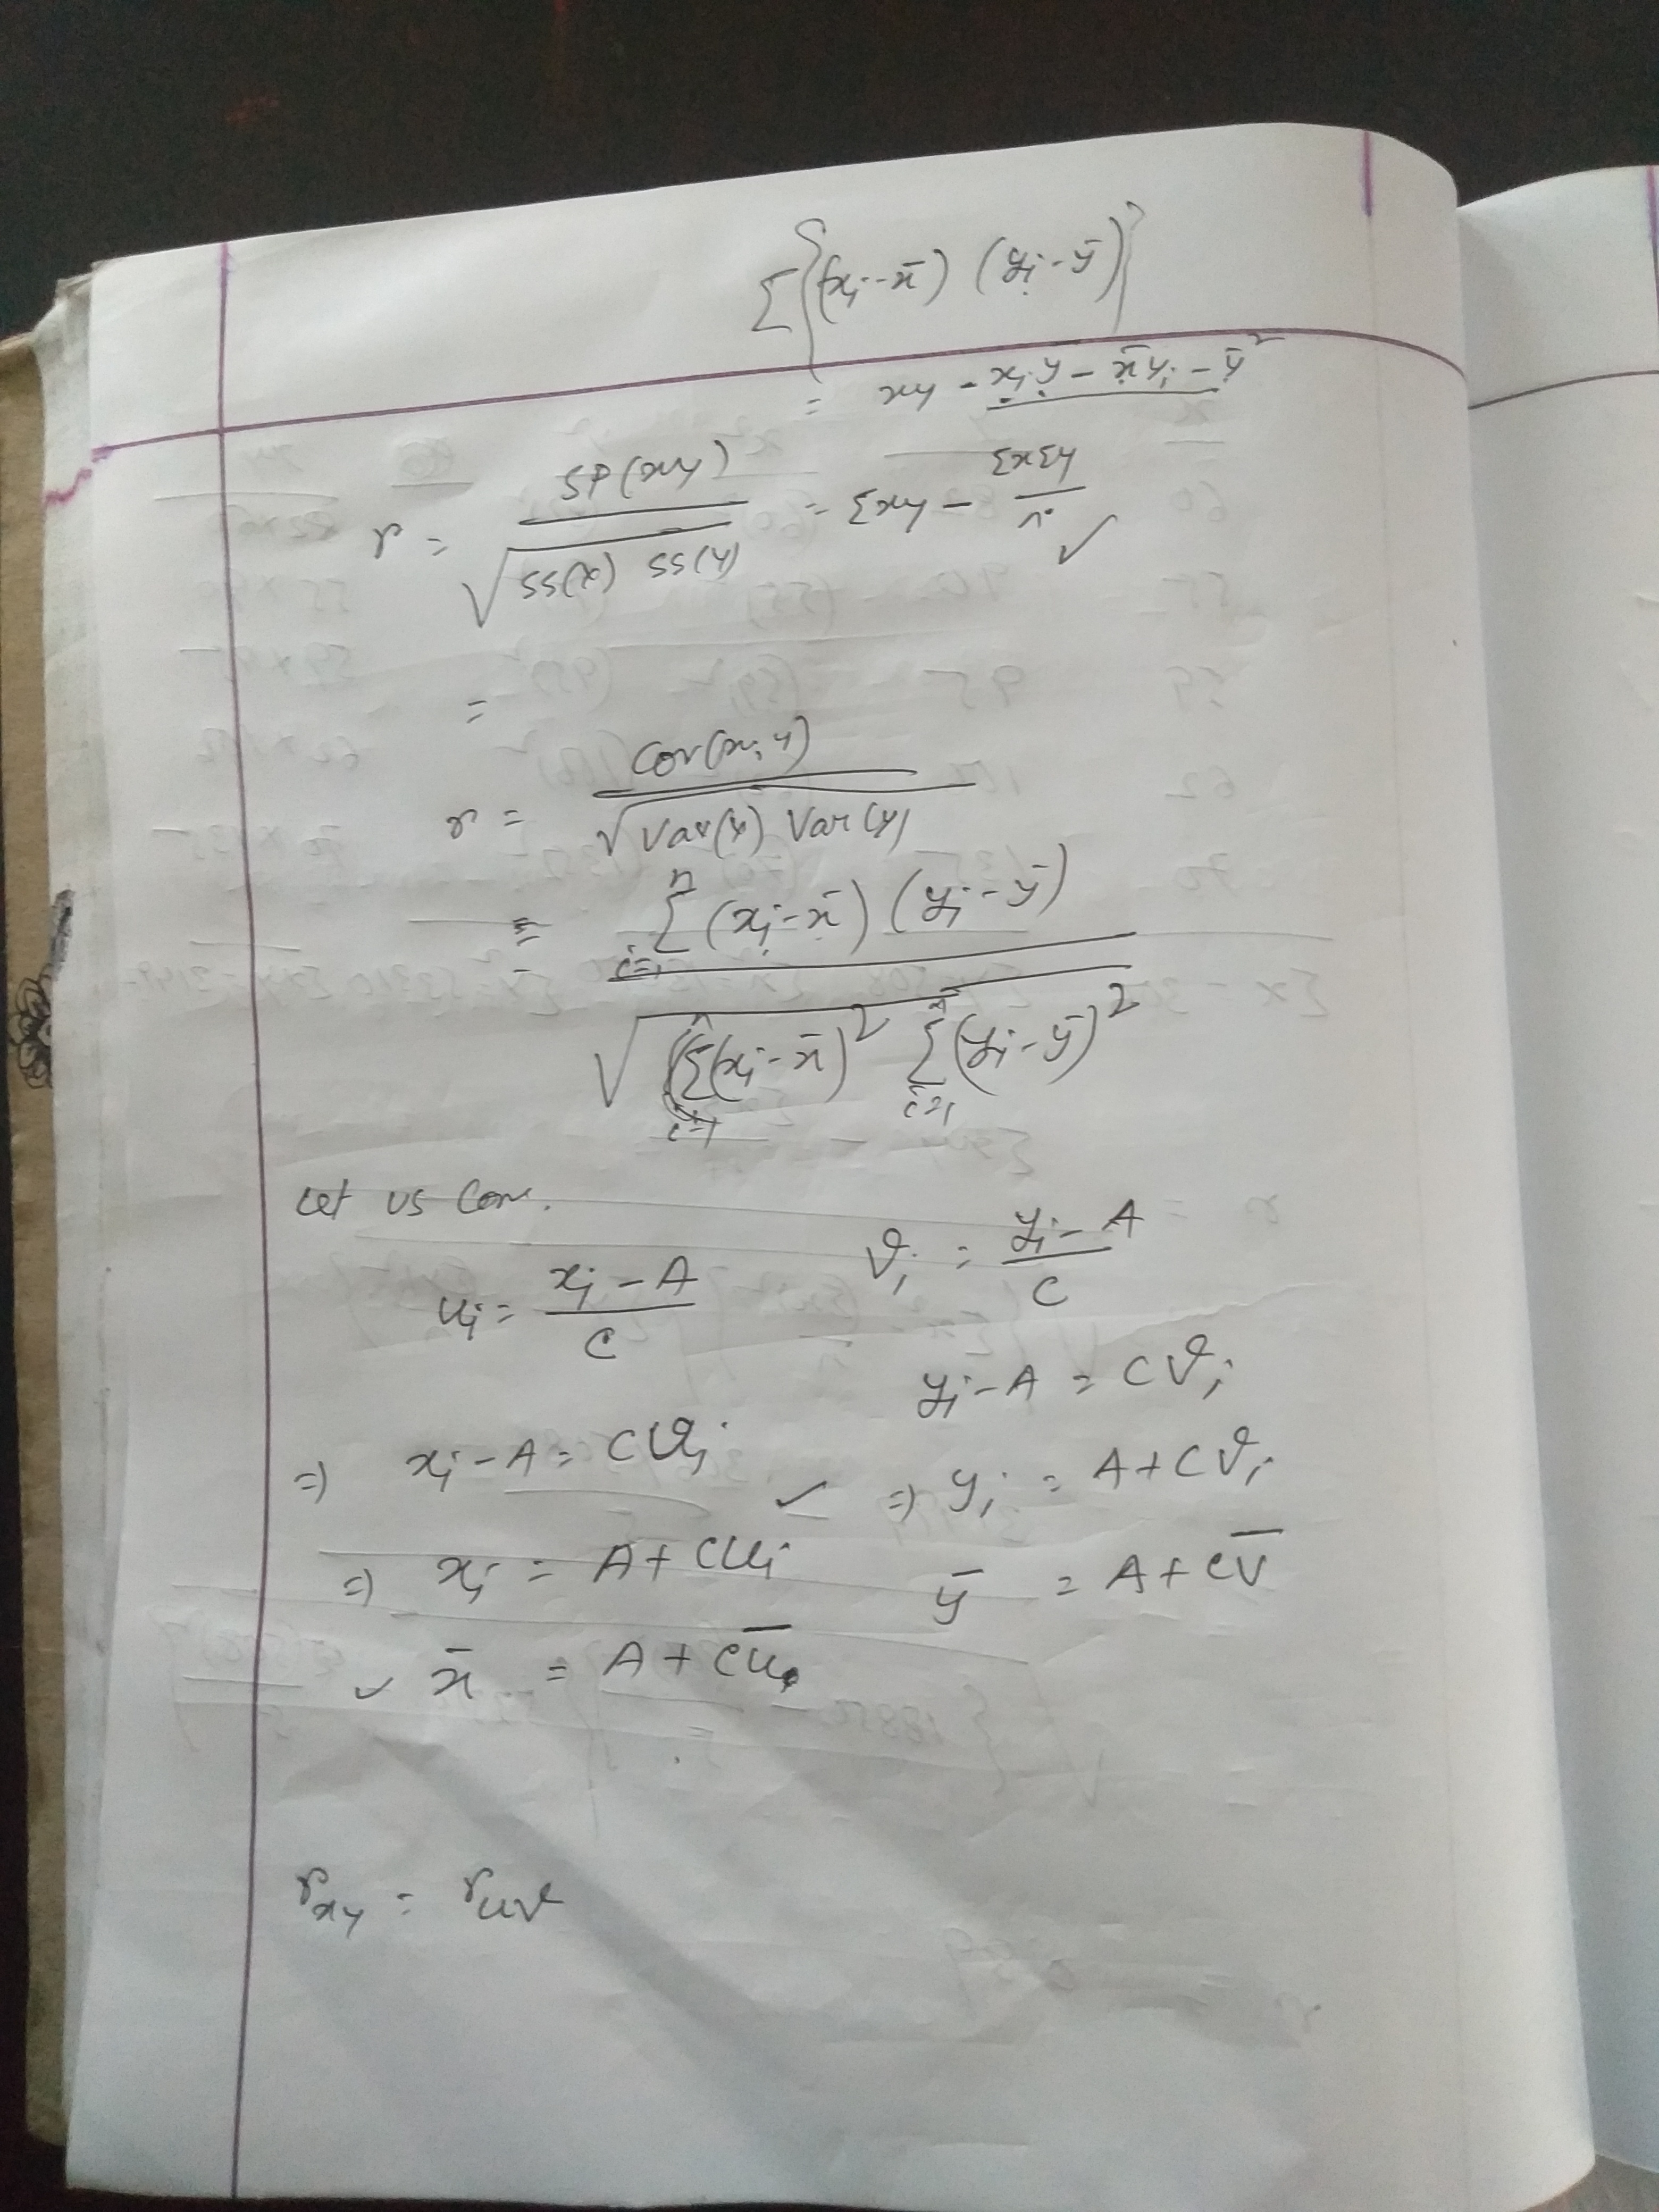 Σ{(xi - x̄) (yi - ȳ)}
= xy - xiȳ - x̄yi - ȳ²
r = SP(xy) / √SS(x) SS(y) = Σxy - ΣxΣy / n ✓
=
r = Cov(x, y) / √Var(x) Var(y)
= Σ(i=1 to n) (xi - x̄) (yi - ȳ) / √Σ(i=1 to n)(xi - x̄)² Σ(i=1 to n)(yi - ȳ)²
Let us Con.
ui = xi - A / C    vi = yi - A / C
yi - A = Cvi
⇒ xi - A = Cui ✓ ⇒ yi = A + Cvi
⇒ xi = A + Cui    ȳ = A + Cv̄
✓ x̄ = A + Cū
rxy = ruv